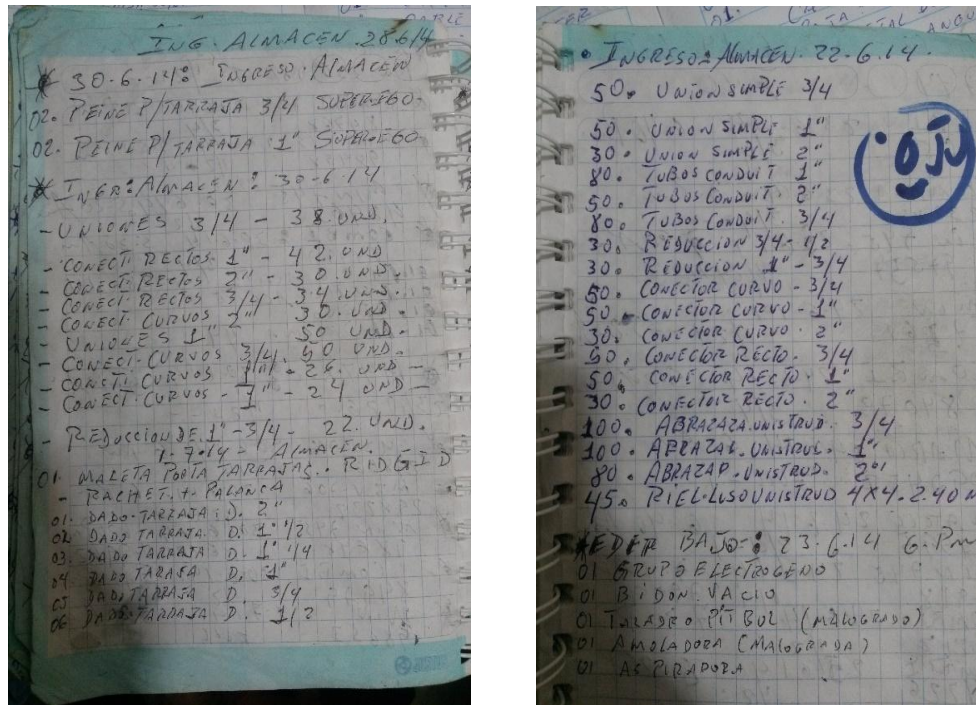 ING. ALMACEN. 28.6/4
* 30-6.14: INGRESO. ALMACEN
02. PEINE P/TARRAJA 3/4 SUPEREGO-
02. PEINE P/TARRAJA 1" SUPER-EGO-
* INGR: ALMACEN: 30-6-14
- UNIONES 3/4 - 38. UND.
- CONECT. RECTOS. 1" - 42. UND
- CONECT. RECTOS 2" - 30. UND.
- CONECT. RECTOS 3/4 - 34. UND.
- CONECT. CURVOS 2" - 30. UND.
- UNIONES 1" 50 UND.
- CONECT. CURVOS 3/4. 50 UND.
- CONECT. CURVOS 1" - 26. UND -
- CONECT. CURVOS - 1" - 24 UND -
- REDUCCION DE. 1" - 3/4 - 22. UND.
1-7-14 - ALMACEN.
01. MALETA PORTA TARRAJAS.. RIDGID
- RACHET. + PALANCA
01. DADO-TARRAJA: D. 2"
02 DADO TARRAJA D. 1" 1/2
03. DADO TARRAJA D. 1" 1/4
04 DADO TARAJA D. 1"
05 DADO TARRAJA D. 3/4
06 DADO TARRAJA D. - 1/2
• INGRESO: ALMACEN. 22-6.14.
50. UNION SIMPLE 3/4
50. UNION SIMPLE 1"
30. UNION SIMPLE 2"
80. TUBOS CONDUIT 1"
50. TUBOS CONDUIT. 2"
80. TUBOS CONDUIT. 3/4
30. REDUCCION 3/4 - 1/2
30. REDUCCION 1" - 3/4
50. CONECTOR CURVO - 3/4
50. CONECTOR CURVO - 1"
30. CONECTOR CURVO. 2"
50. CONECTOR RECTO. 3/4
50. CONECTOR RECTO. 1"
30. CONECTOR RECTO. 2"
100. ABRAZAZA. UNISTRUD. 3/4
100. ABRAZAZ. UNISTRUD. 1"
80. ABRAZAP. UNISTRUD. 2"
45. RIEL. LUSO UNISTRUD 4X4. 2.40 M
OJO
* EDER BAJO: 23-6.14 6. Pm
01 GRUPO ELECTROGENO
01 BIDON. VACIO
01 TALADRO PITBUL (MALOGRADO)
01 AMOLADORA (MALOGRADA)
01 ASPIRADORA